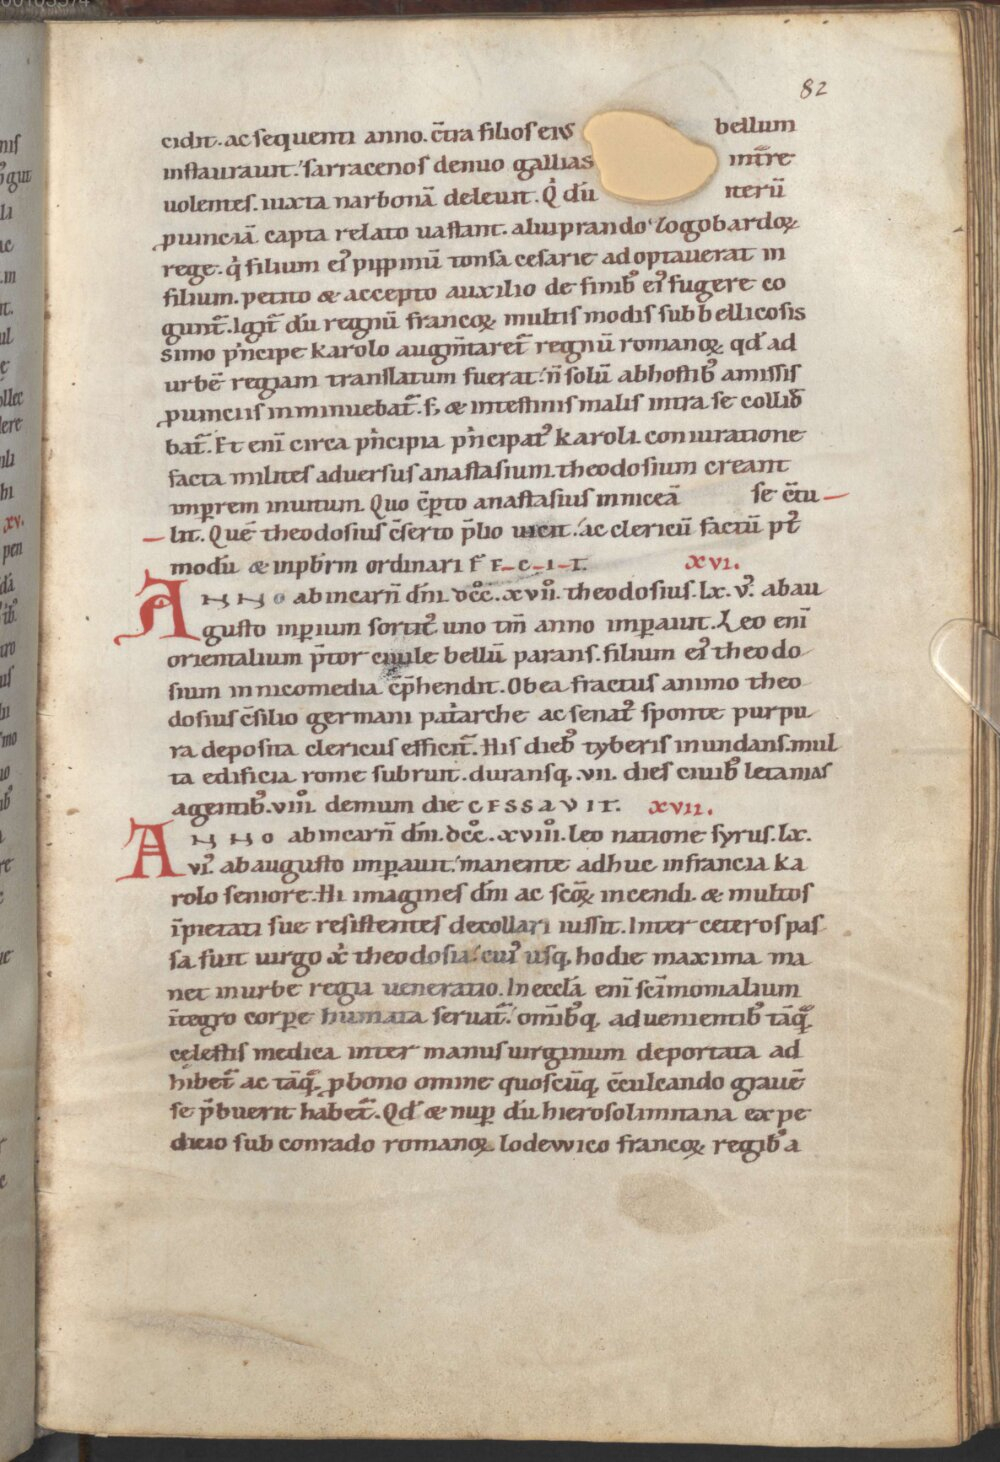 82
cidit. ac sequenti anno. c̄tra filios eiꝰ bellum
instaurauit. sarracenos denuo gallias intͬre
uolentes. iuxta narbonā deleuit. Q͛ dū iterū
ꝓuinciā capta relato uastant. aluiprando logobardoꝝ
rege. q͛ filium eiꝰ pippinū tonsa cesarie adoptauerat in
filium. petito & accepto auxilio de finibꝰ eiꝰ fugere co
gunt᷑. Igit᷑ dū regnū francoꝝ multis modis sub bellicosis
simo pͥncipe karolo augm̄taret᷑ regnū romanoꝝ qd̓ ad
urbē regiam translatum fuerat. n̄ solū ab hostibꝰ amissis
ꝓuinciis inminuebat᷑. s; & intestinis malis intra se collib̄
bat᷑. Et enī circa pͥncipia pͥncipatꝰ karoli coniuratione
facta milites aduersus anastasium. theodosium creant
imꝑrem inuitum. Quo c̄ꝑto anastasius in niceā se c̄tu
lit. Quē theodosius c̄serto p̄lio uicit. ac clericū factū pꝰt
modū & in pb̄rm ordinari f̄ F–C–I–T. XVI.
ANNO ab incarn̄ dn̄i. dcͦc. xvii. theodosius. lx. vꝰ. ab au
gusto inꝑium sortitꝰ uno tm̄ anno imꝑauit. Leo enī
orientalium p̄tor ciuile bellū parans. filium eiꝰ theodo
sium in nicomedia c̄p̄hendit. Ob ea fractus animo theo
dosius c̄silio germani pat͛arche ac senatꝰ sponte purpu
ra deposita clericus efficit᷑. His diebꝰ tyberis inundans. mul
ta edificia rome subruit. duransq;. vii. dies ciuibꝰ letanias
agentibꝰ. viiiͦ. demum die CESSAVIT. XVII.
ANNO ab incarn̄ dn̄i. dcͦc. xviiiͦ. leo natione syrus. lx.
viꝰ. ab augusto imꝑauit. manente adhuc in francia ka
rolo seniore. Hi imagines dn̄i ac scōꝝ incendi. & multos
īpietati sue resistentes decollari iussit. Inter ceteros pas
sa fuit uirgo x͛ theodosia. cuiꝰ usq; hodie maxima ma
net in urbe regia ueneratio. In eccl̄a enī sc̄imonialium
ītegro corꝑe humata seruat᷑. om̄ibꝰq; aduenientibꝰ tāq̄ᷓ
celestis medica inter manus uirginum deportata ad
hibet᷑ ac tāq̄ᷓ. ꝓ bono omine quoscūq; c̄culcando grauē
se p̄buerit habet᷑. Qd̓ & nuꝑ dū hierosolimitana expe
dicio sub conrado romanoꝝ lodewico francoꝝ regibꝰ a